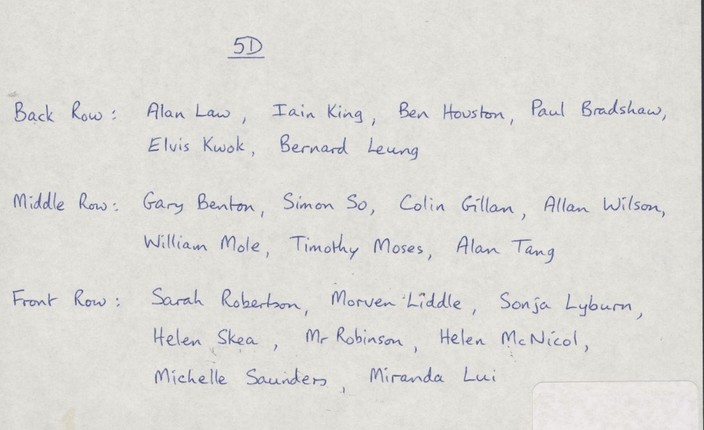 5D
Back Row: Alan Law, Iain King, Ben Houston, Paul Bradshaw,
Elvis Kwok, Bernard Leung
Middle Row: Gary Benton, Simon So, Colin Gillan, Allan Wilson,
William Mole, Timothy Moses, Alan Tang
Front Row: Sarah Robertson, Morven Liddle, Sonja Lyburn,
Helen Skea, Mr Robinson, Helen McNicol,
Michelle Saunders, Miranda Lui